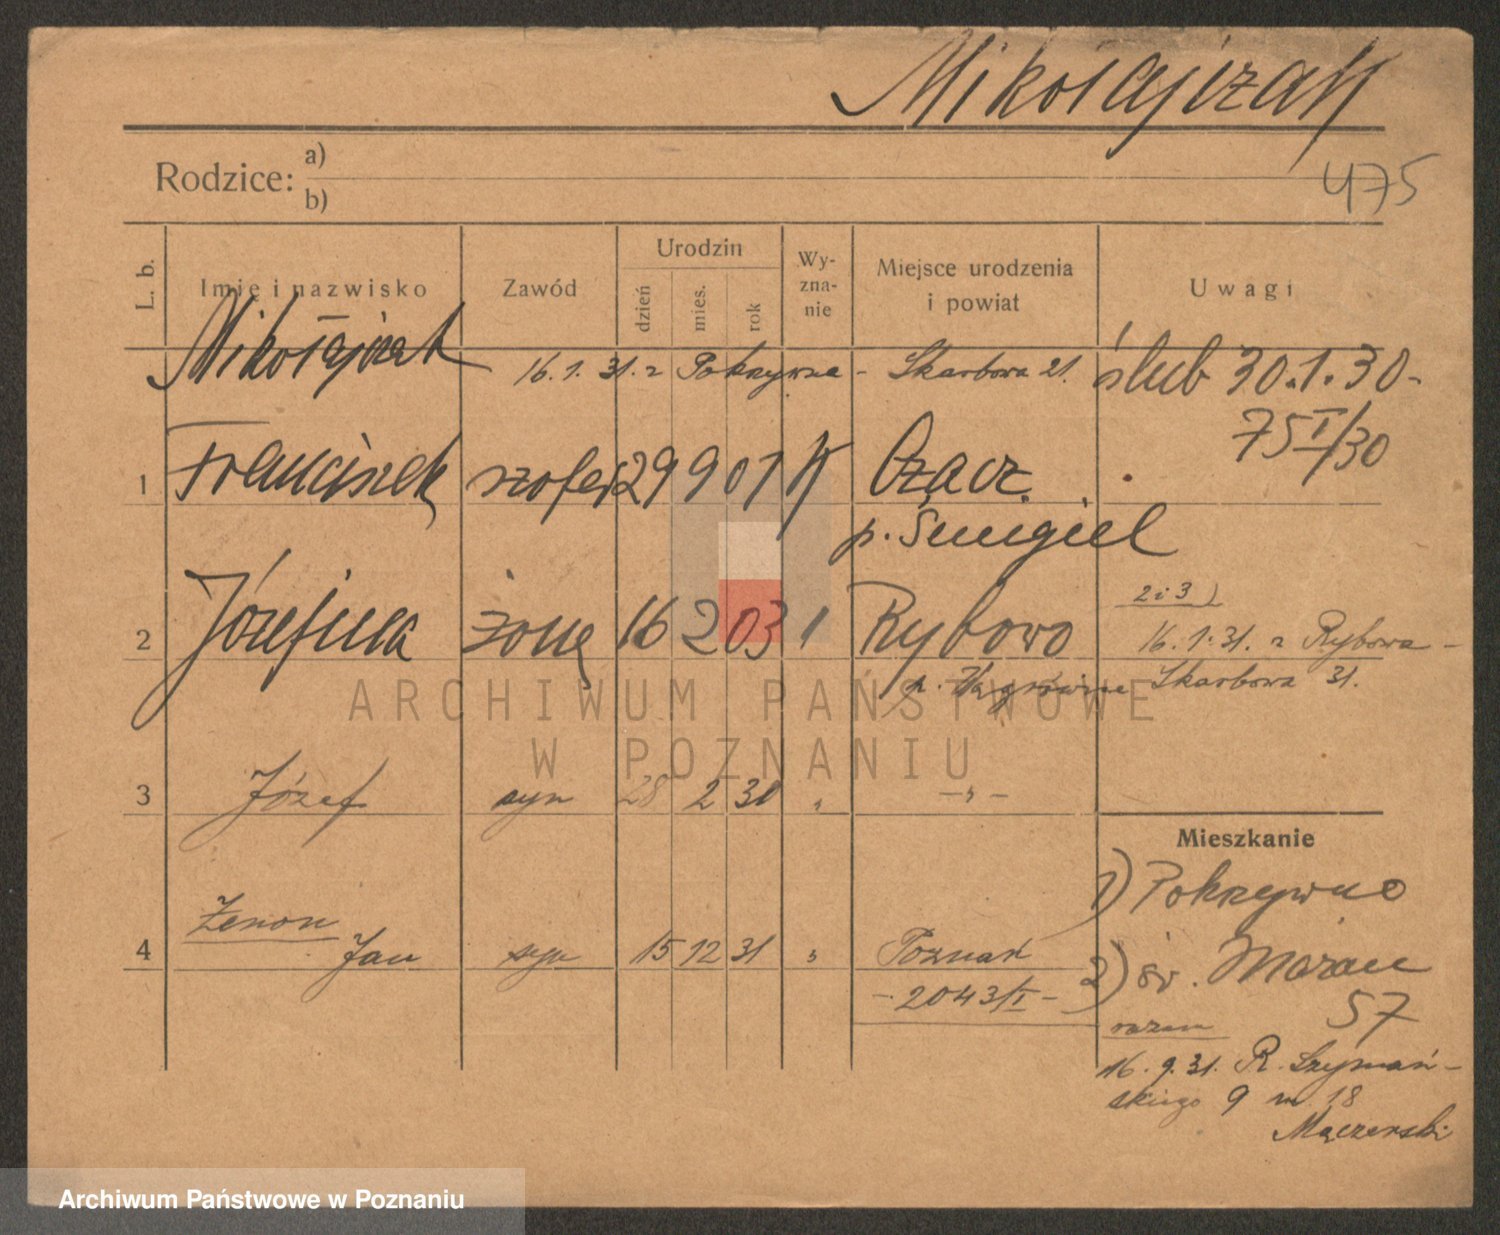 Mikołajczak
475
Rodzice: a)
b)
L. b. Imię i nazwisko Zawód Urodzin dzień mies. rok Wy-zna-nie Miejsce urodzenia i powiat Uwagi
Mikołajczak 16.1.31. z Pokrzywna - Skarbowa 21. ślub 30.1.30-
75 I/30
1 Franciszek szofer 29 9 01 K Czacz
p. Śmigiel
2 Józefina żona 16 2 03 " Rybowo
2 i 3)
16.1.31. z Rybowa -
p. Wągrowiec Skarbowa 31.
3 Józef syn 28 2 30 " -"-
Mieszkanie
1) Pokrzywno
Zenon
4 Jan syn 15 12 31 " Poznań
2) św. Marcin
57
- 2043/I -
razem
16.9.31. R. Szymań-
skiego 9 m. 18
Mączerski
ARCHIWUM PAŃSTWOWE
W POZNANIU
Archiwum Państwowe w Poznaniu